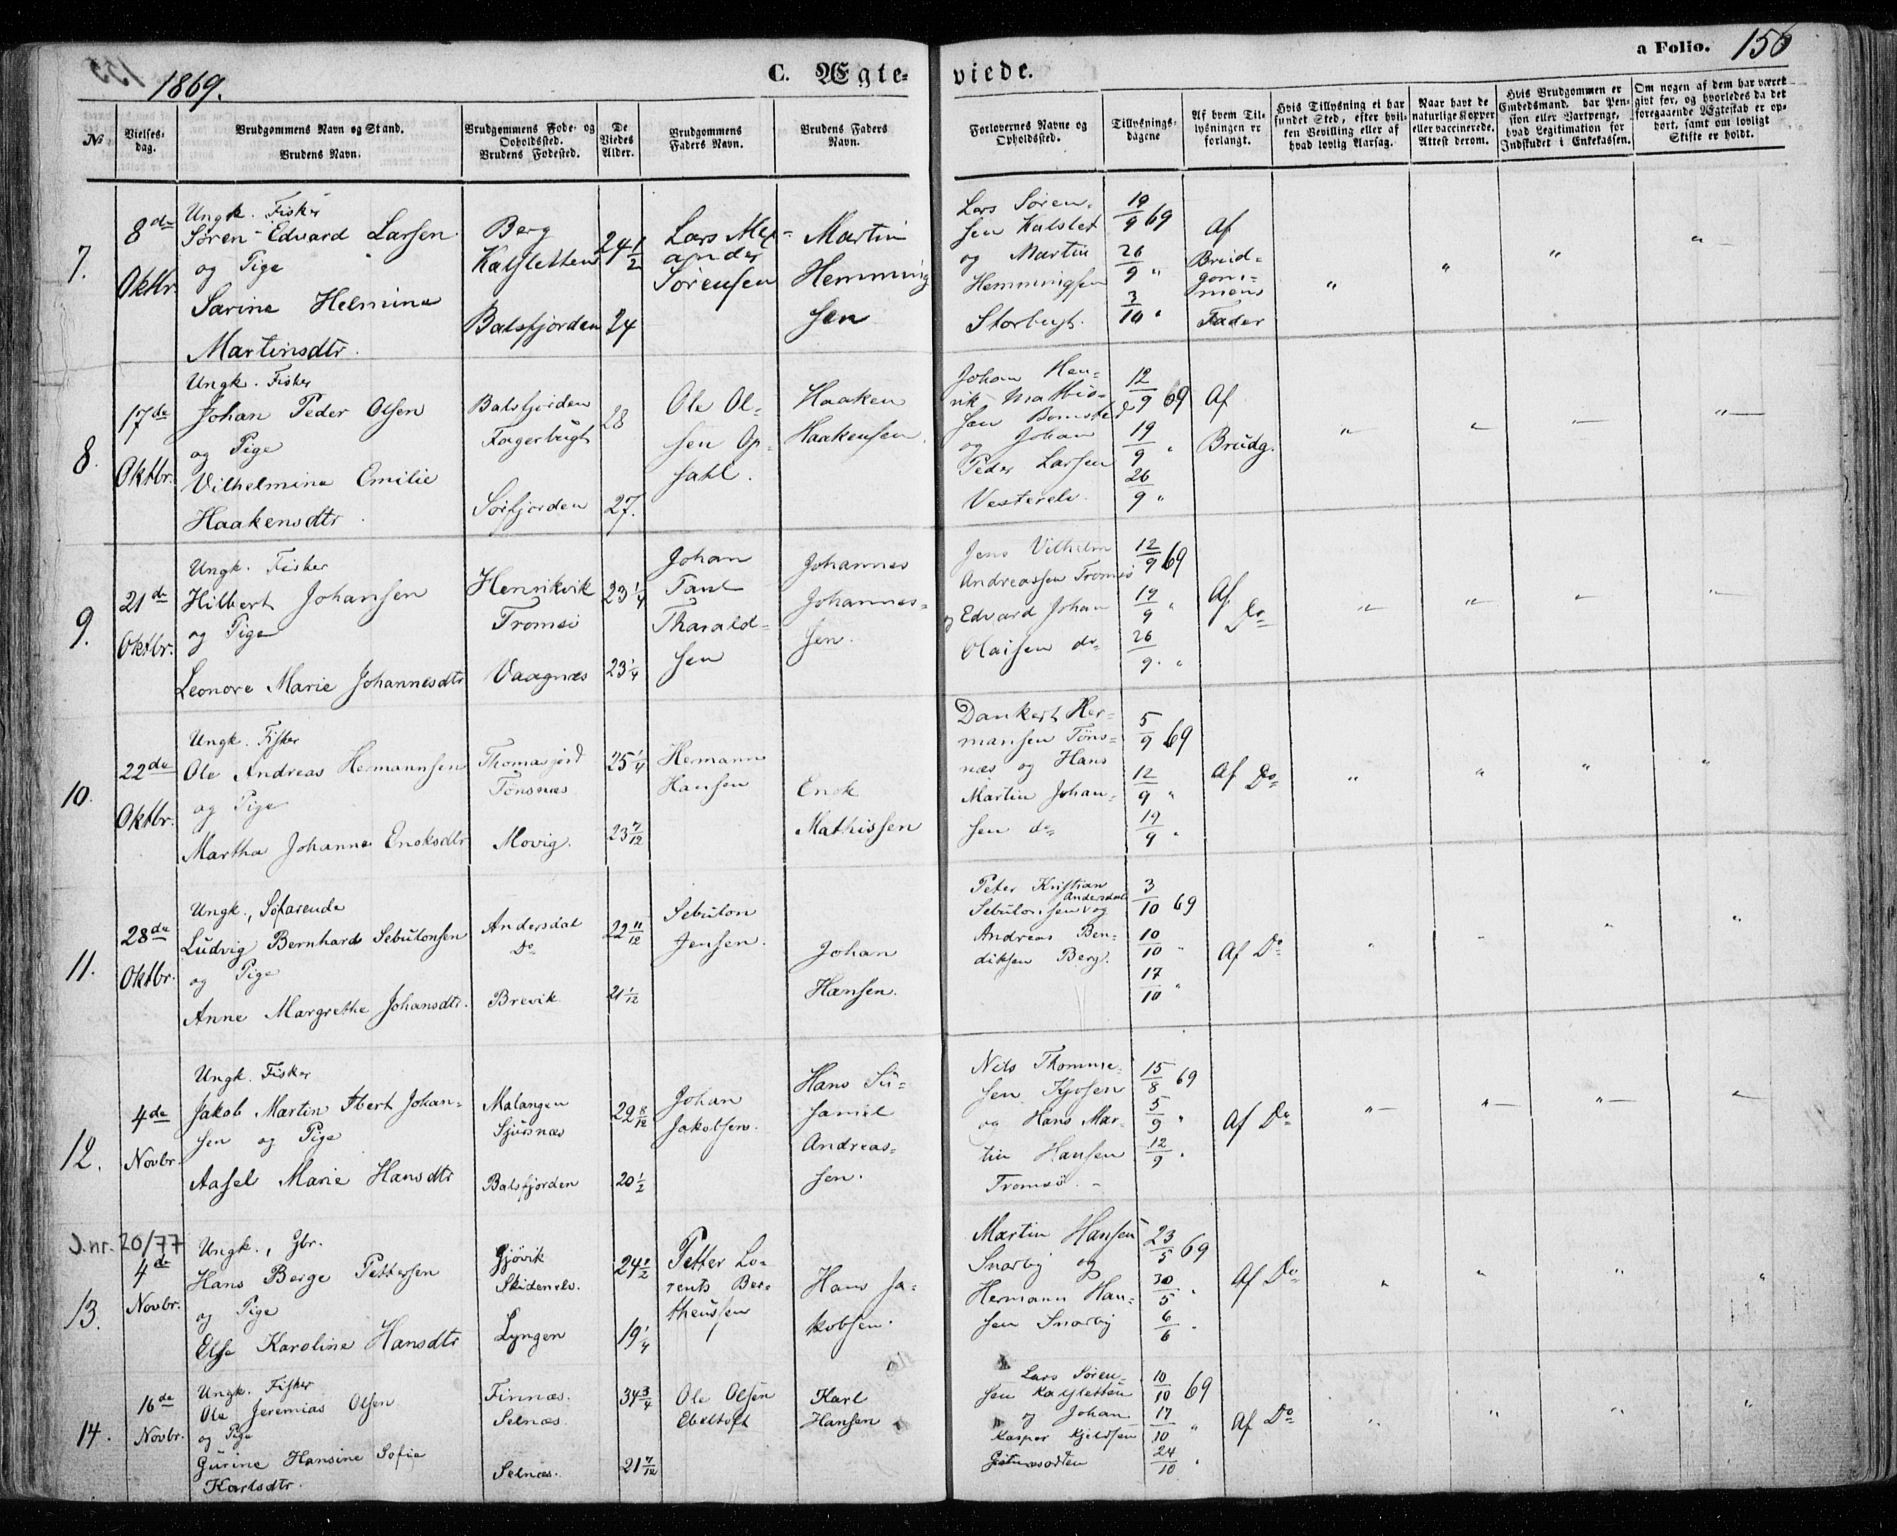 1869.
C. Ægte-
viede.
a Folio. 156
No
Vielses-
dag.
Brudgommens Navn og Stand.
Brudens Navn.
Brudgommens Føde- og
Opholdssted.
Brudens Fødested.
De
Viedes
Alder.
Brudgommens
Faders Navn.
Brudens Faders
Navn.
Forlovernes Navne og
Opholdssted.
Tillysnings-
dagene
Af hvem Til-
lysningen er
forlangt.
Hvis Tillysning ei har
fundet Sted, efter hvil-
ken Bevilling eller af
hvad lovlig Aarsag.
Naar havt de
naturlige Kopper
eller vaccinerede.
Attest derom.
Hvis Brudgommen er
Embedsmand, har Pen-
sion eller Vartpenge,
hvad Legitimation for
Indskudet i Enkekassen.
Om nogen af dem har været
gift før, og hvorledes da det
foregaaende Ægteskab er op-
hørt, samt om lovligt
Skifte er holdt.
7.
8de
Oktbr.
Ungk. Fisker
Søren Edvard Larsen
og Pige
Sarine Helmine
Martinsdtr.
Berg
Kalsletten
Balsfjorden
24 1/2
24
Lars Alex-
ander
Sørensen
Martin
Hemming
sen
Lars Søren-
sen Kalslet
og Martin
Hemmingsen
Storbugt.
19/9 69
26/9 "
3/10 "
Af
Brud-
gom-
mens
Fader
8.
17de
Oktbr.
Ungk. Fisker
Johan Peder Olsen
og Pige
Vilhelmine Emilie
Haakensdtr.
Balsfjorden
Fagerbugt
Sørfjorden
28
27.
Ole Ol-
sen Op-
sahl.
Haaken
Haakensen.
Johan Hen-
rik Mathis-
sen Bomsted
og Johan
Peder Larsen
Vesterelv.
12/9 69
19/9 "
26/9 "
Af
Brudg.
9.
21de
Oktbr.
Ungk. Fisker
Hilbert Johansen
og Pige
Leonore Marie Johannesdtr
Henrikvik
Tromsø
Vaagnæs
23 1/4
23 1/4
Johan
Faut
Tharald-
sen
Johannes
Johannes-
sen.
Jens Vilhelm
Andreassen Tromsø
og Edvard Johan
Olaisen do
12/9 69
19/9 "
26/9 "
Af
Do
10.
22de
Oktbr.
Ungk. Fisker
Ole Andreas Hermannsen
og Pige
Martha Johanna Enoksdtr
Thomasjord
Tønsnæs
Movig.
25 1/4
23 7/12
Hermann
Hansen
Enok
Mathissen
Dankert Her-
mansen Tøns-
næs og Hans
Martin Johan-
sen do
5/9 69
12/9 "
19/9 "
Af Do
11.
28de
Oktbr.
Ungk., Søfarende
Ludvig Bernhard Sebulonsen
og Pige
Anne Margrethe Johansdtr.
Andersdal
Do
Brevik
22 11/12
21 1/12
Sebulon
Jensen.
Johan
Hansen.
Peter Kristian
Andersdal
Sebulonsen og
Andreas Ben-
diksen Berg.
3/10 69
10/10 "
17/10 "
Af Do
12.
4de
Novbr.
Ungk. Fisker
Jakob Martin Ebert Johan-
sen og Pige
Aasel Marie Hansdtr
Malangen
Sjursnæs
Balsfjorden
29 8/12
20 1/2
Johan
Jakobsen.
Hans Su-
saniel
Andreas-
sen.
Nils Thomme-
sen Kjosen
og Hans Mar-
tin Hansen
Tromsø.
15/8 69
5/9 "
12/9 "
Af Do
J.nr. 20/77
13.
4de
Novbr.
Ungk., Gbr.
Hans Berge Pettersen
og Pige
Else Karoline Hansdtr
Gjøvik
Skidenelv.
Lyngen
24 1/2
19 1/4
Petter Lo-
rents Ber-
theussen
Hans Ja-
kobsen.
Martin Hansen
Snarby og
Hermann Han-
sen Snarby
23/5 69
30/5 "
6/6 "
Af Do
14.
16de
Novbr.
Ungk. Fisker
Ole Jeremias Olsen
og Pige
Gurine Hansine Sofie
Karlsdtr.
Finnæs.
Selnæs.
Selnæs.
34 3/4
21 7/12
Ole Olsen
Ebeltoft
Karl
Hansen
Lars Søren-
sen Kalsletten
og Johan
Kasper Kjeldsen
10/10 69
17/10 "
24/10 "
Af Do